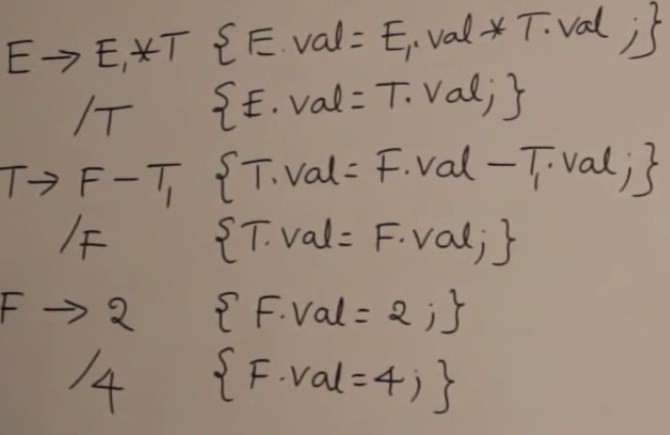 E → E₁*T {E.val = E₁.val * T.val ;}
/T {E.val = T.val;}
T → F - T₁ {T.val = F.val - T₁.val;}
/F {T.val = F.val;}
F → 2 {F.val = 2;}
/4 {F.val = 4;}